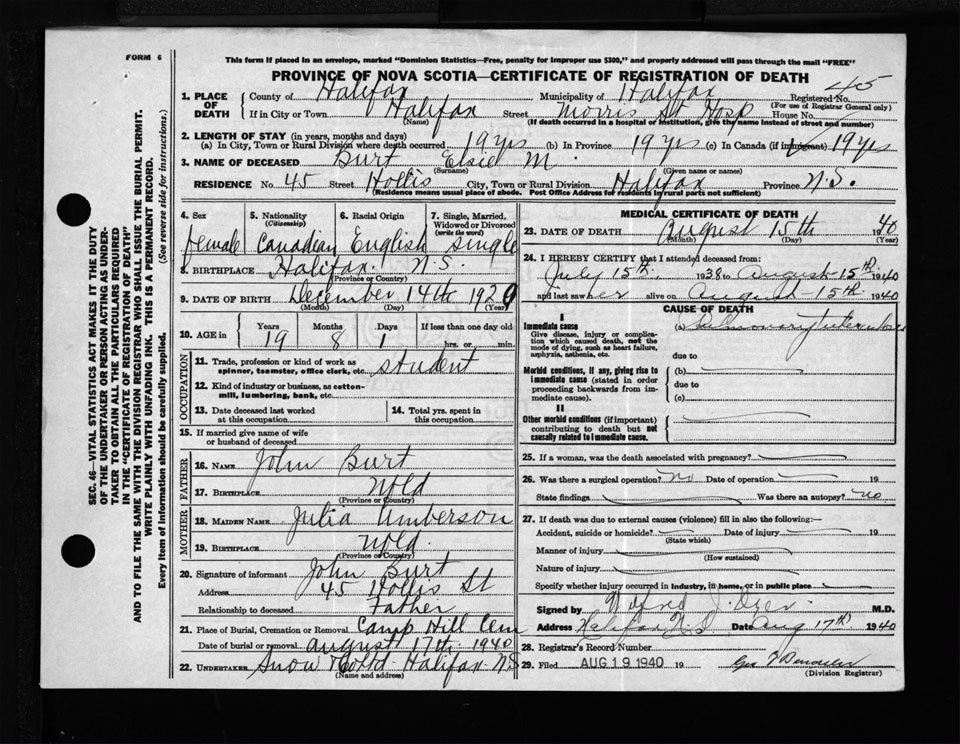 FORM 6
This form if placed in an envelope, marked "Dominion Statistics—Free, penalty for improper use $300," and properly addressed will pass through the mail "FREE"
PROVINCE OF NOVA SCOTIA—CERTIFICATE OF REGISTRATION OF DEATH
1. PLACE OF DEATH
County of Halifax Municipality of Halifax Registered No. 45
(For use of Registrar General only)
If in City or Town Halifax Street Morris St Hosp House No.
(Name) (If death occurred in a hospital or institution, give the name instead of street and number)
2. LENGTH OF STAY (in years, months and days)
(a) In City, Town or Rural Division where death occurred 19 yrs (b) In Province 19 yrs (c) In Canada (if immigrant) 19 yrs
3. NAME OF DECEASED Burt Elsie M.
(Surname) (Given name or names)
RESIDENCE No. 45 Street Hollis City, Town or Rural Division Halifax Province N.S.
(Residence means usual place of abode. Post Office Address for residents in rural parts not sufficient)
4. Sex 5. Nationality (Citizenship) 6. Racial Origin 7. Single, Married, Widowed or Divorced (write the word)
female Canadian English single
8. BIRTHPLACE Halifax. N.S.
(Province or Country)
9. DATE OF BIRTH December 14th 1920
(Month) (Day) (Year)
10. AGE in Years Months Days If less than one day old
19 8 1 hrs. or min.
OCCUPATION
11. Trade, profession or kind of work as spinner, teamster, office clerk, etc. student
12. Kind of industry or business, as cotton-mill, lumbering, bank, etc.
13. Date deceased last worked at this occupation 14. Total yrs. spent in this occupation
15. If married give name of wife or husband of deceased
FATHER
16. NAME John Burt
17. BIRTHPLACE Nfld
(Province or Country)
MOTHER
18. MAIDEN NAME Julia Umberson
19. BIRTHPLACE Nfld.
(Province or Country)
20. Signature of informant John Burt
Address 45 Hollis St
Relationship to deceased Father
21. Place of Burial, Cremation or Removal Camp Hill Cem
Date of burial or removal august 17th 1940
22. UNDERTAKER Snow Halifax N.S
(Name and address)
MEDICAL CERTIFICATE OF DEATH
23. DATE OF DEATH August 15th 1940
(Month) (Day) (Year)
24. I HEREBY CERTIFY that I attended deceased from:
July 15th 1938 to August 15th 1940
and last saw her alive on August 15th 1940
CAUSE OF DEATH
I
Immediate cause (a) Pulmonary Tuberculosis
Give disease, injury or complication which caused death, not the mode of dying, such as heart failure, asphyxia, asthenia, etc.
due to
Morbid conditions, if any, giving rise to immediate cause (stated in order proceeding backwards from immediate cause).
(b)
due to
(c)
II
Other morbid conditions (if important) contributing to death but not causally related to immediate cause.
25. If a woman, was the death associated with pregnancy?
26. Was there a surgical operation? no Date of operation 19
State findings Was there an autopsy? no
27. If death was due to external causes (violence) fill in also the following:—
Accident, suicide or homicide? Date of injury 19
(State which)
Manner of injury
(How sustained)
Nature of injury
Specify whether injury occurred in industry, in home, or in public place
Signed by M.D.
Address Halifax N.S Date Aug 17th 1940
28. Registrar's Record Number
29. Filed AUG 19 1940 19
(Division Registrar)
SEC. 46—VITAL STATISTICS ACT MAKES IT THE DUTY
OF THE UNDERTAKER OR PERSON ACTING AS UNDER-
TAKER TO OBTAIN ALL THE PARTICULARS REQUIRED
IN THE "CERTIFICATE OF REGISTRATION OF DEATH"
AND TO FILE THE SAME WITH THE DIVISION REGISTRAR WHO SHALL ISSUE THE BURIAL PERMIT.
WRITE PLAINLY WITH UNFADING INK. THIS IS A PERMANENT RECORD.
Every item of information should be carefully supplied. (See reverse side for instructions.)